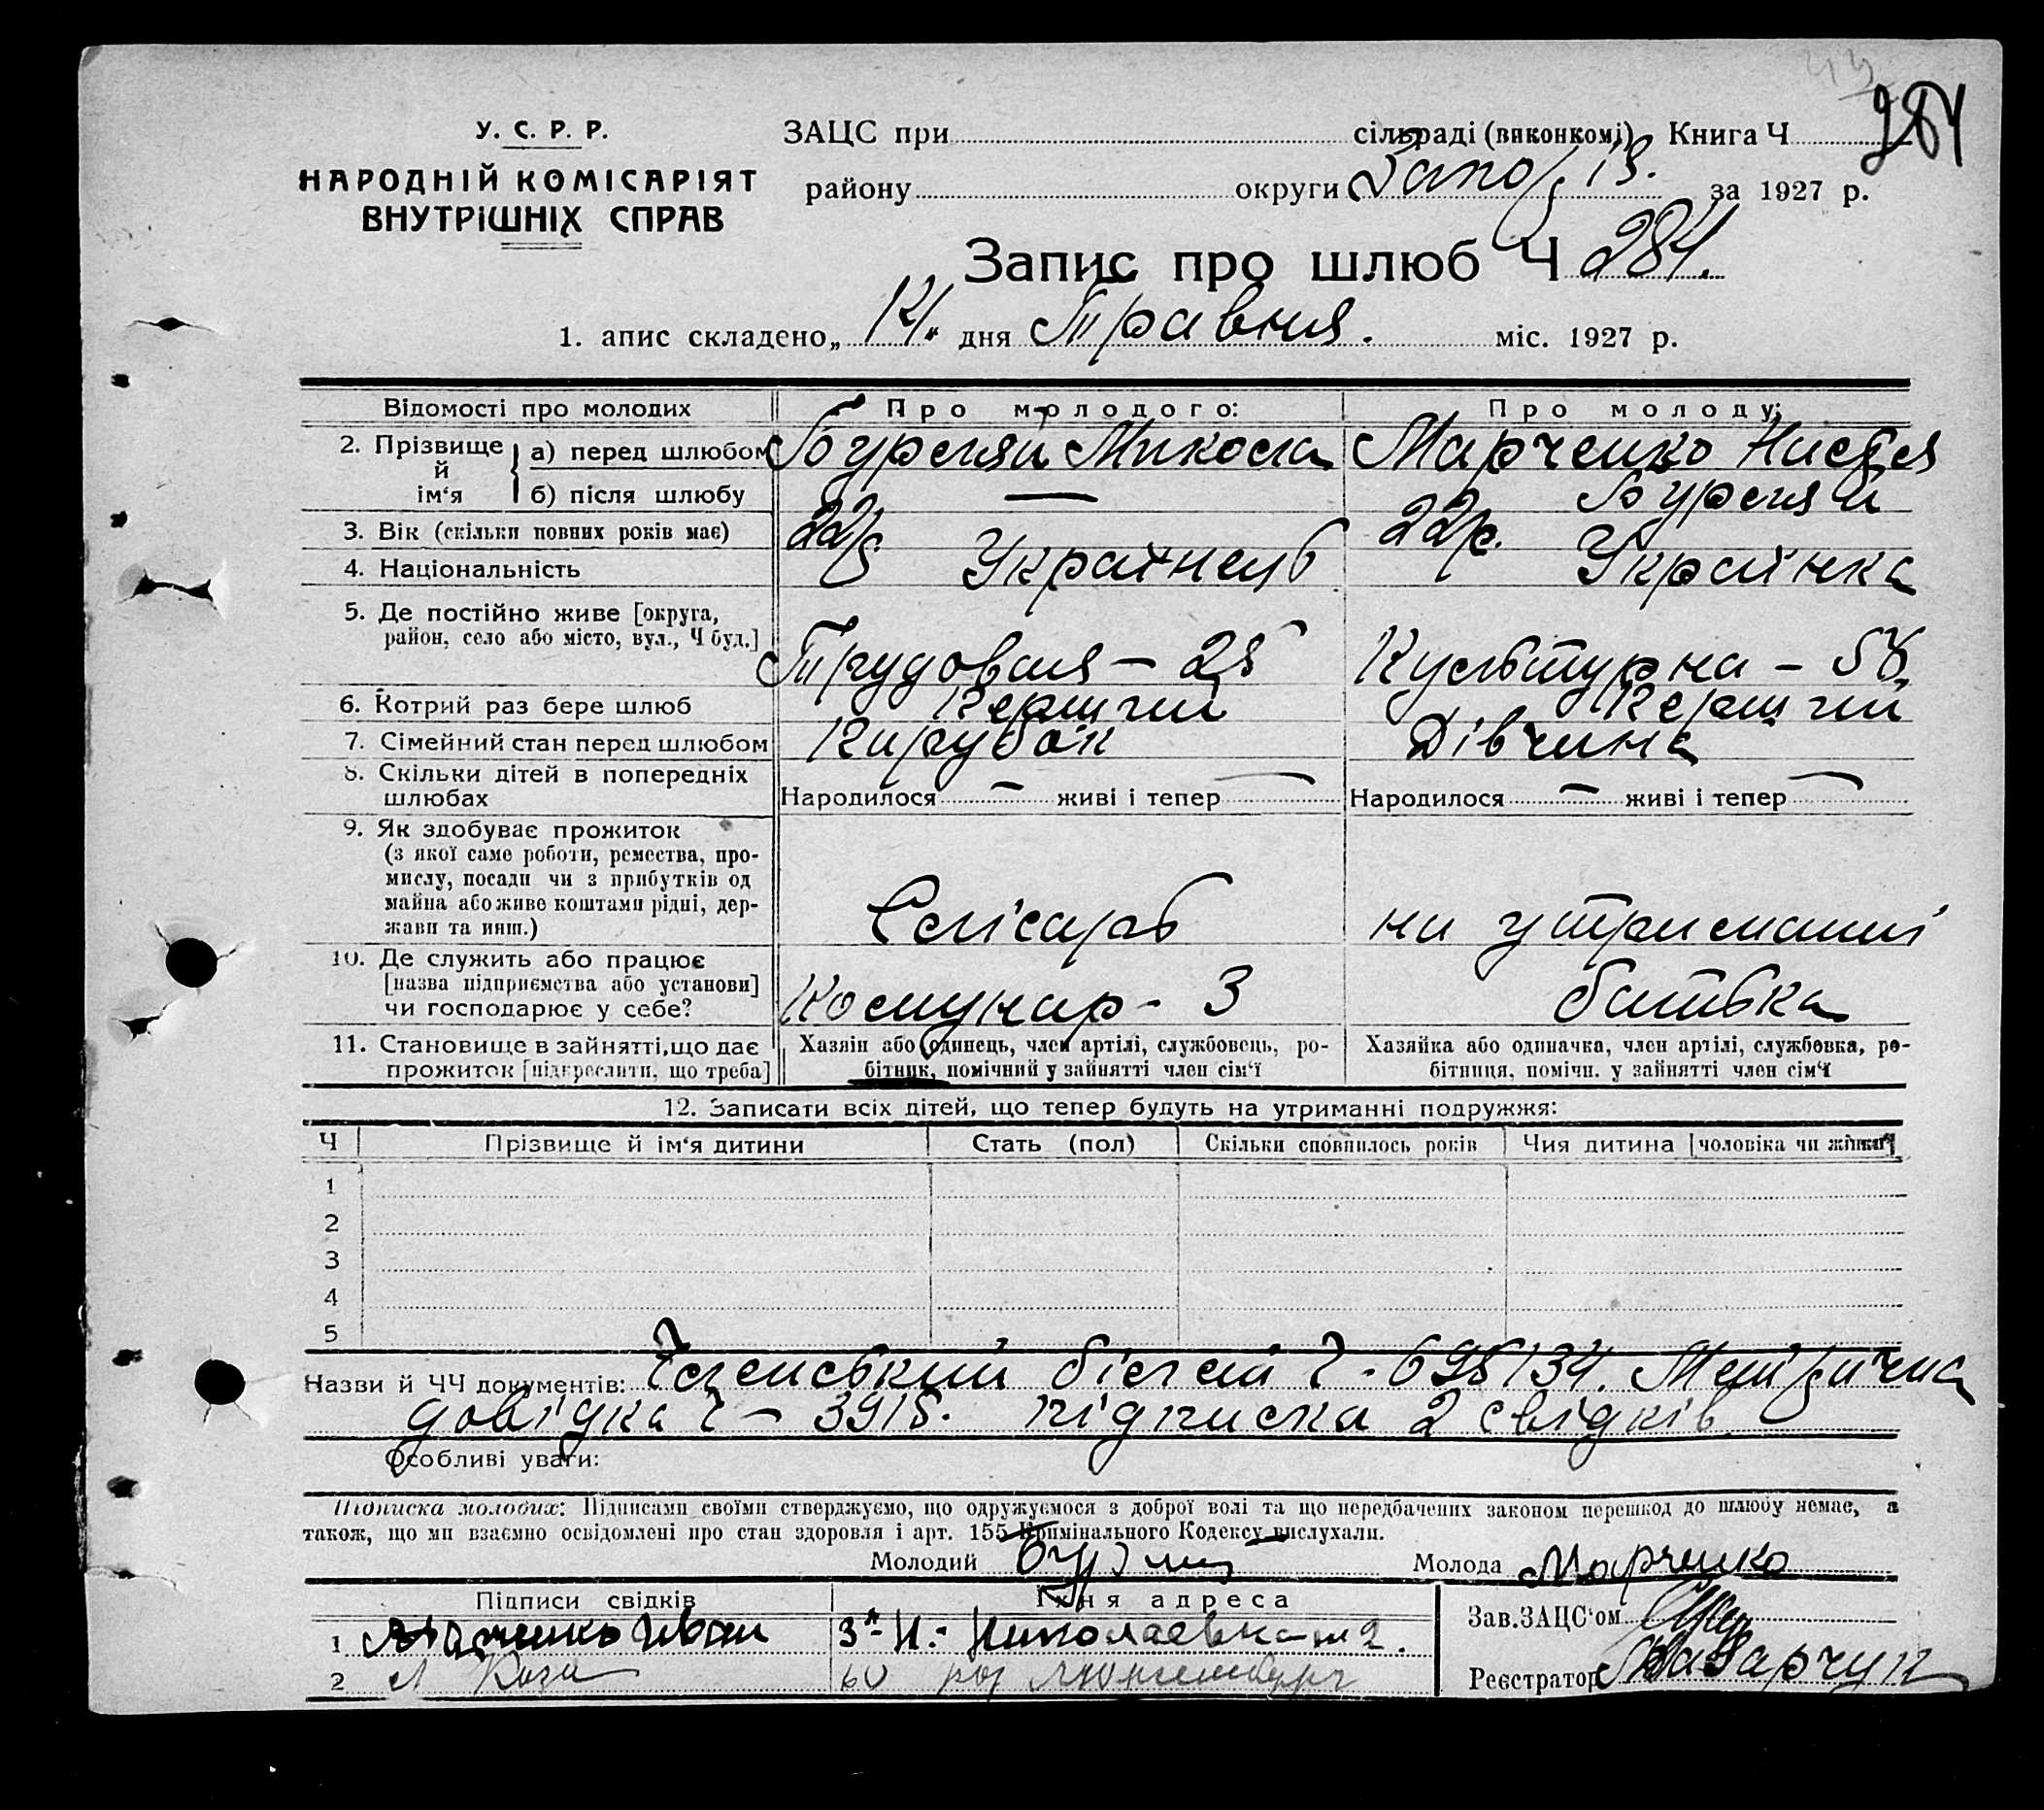 284
У. С. Р. Р.
НАРОДНІЙ КОМІСАРІЯТ
ВНУТРІШНІХ СПРАВ
ЗАЦС при сільраді (виконкомі) Книга Ч
району округи за 1927 р.
Запис про шлюб Ч 284.
1. апис складено „14" дня Травня. міс. 1927 р.
Відомості про молодих Про молодого: Про молоду:
2. Прізвище й ім'я
а) перед шлюбом Бурсляй Микола Марченко Настя
б) після шлюбу — Бурсляй
3. Вік (скільки повних років має) 22 р 22 р.
4. Національність Українець Українка
5. Де постійно живе [округа,
район, село або місто, вул., Ч буд.] Трудовая – 25 Культурна –
6. Котрий раз бере шлюб Перший Перший
7. Сімейний стан перед шлюбом Парубок Дівчина
8. Скільки дітей в попередніх
шлюбах Народилося — живі і тепер — Народилося — живі і тепер —
9. Як здобуває прожиток
(з якої саме роботи, ремества, про-
мислу, посади чи з прибутків од
майна або живе коштами рідні, дер-
жави та инш.) Слісарь на утриманні
10. Де служить або працює
[назва підприємства або установи]
чи господарює у себе? Комунар - 3 батька
11. Становище в зайнятті, що дає
прожиток [підкреслити, що треба]
Хазяїн або одинець, член артілі, службовець, ро-
бітник, помічний у зайнятті член сім'ї
Хазяйка або одиначка, член артілі, службовка, ро-
бітниця, помічн. у зайнятті член сім'ї
12. Записати всіх дітей, що тепер будуть на утриманні подружжя:
Ч Прізвище й ім'я дитини Стать (пол) Скільки сповнилось років Чия дитина [чоловіка чи жінки]
1
2
3
4
5
Назви й ЧЧ документів: Членський білет Ч - 698134. Метрична
довідка Ч – 3915. підписка 2 свідків
Особливі уваги:
Підписка молодих: Підписами своїми стверджуємо, що одружуємося з доброї волі та що передбачених законом перешкод до шлюбу немає, а
також, що ми взаємно освідомлені про стан здоровля і арт. 155 Кримінального Кодексу вислухали.
Молодий Молода Марченко
Підписи свідків Їхня адреса
1 Иван Николаевка 2.
2 Коза 60
Зав. ЗАЦС'ом
Реєстратор